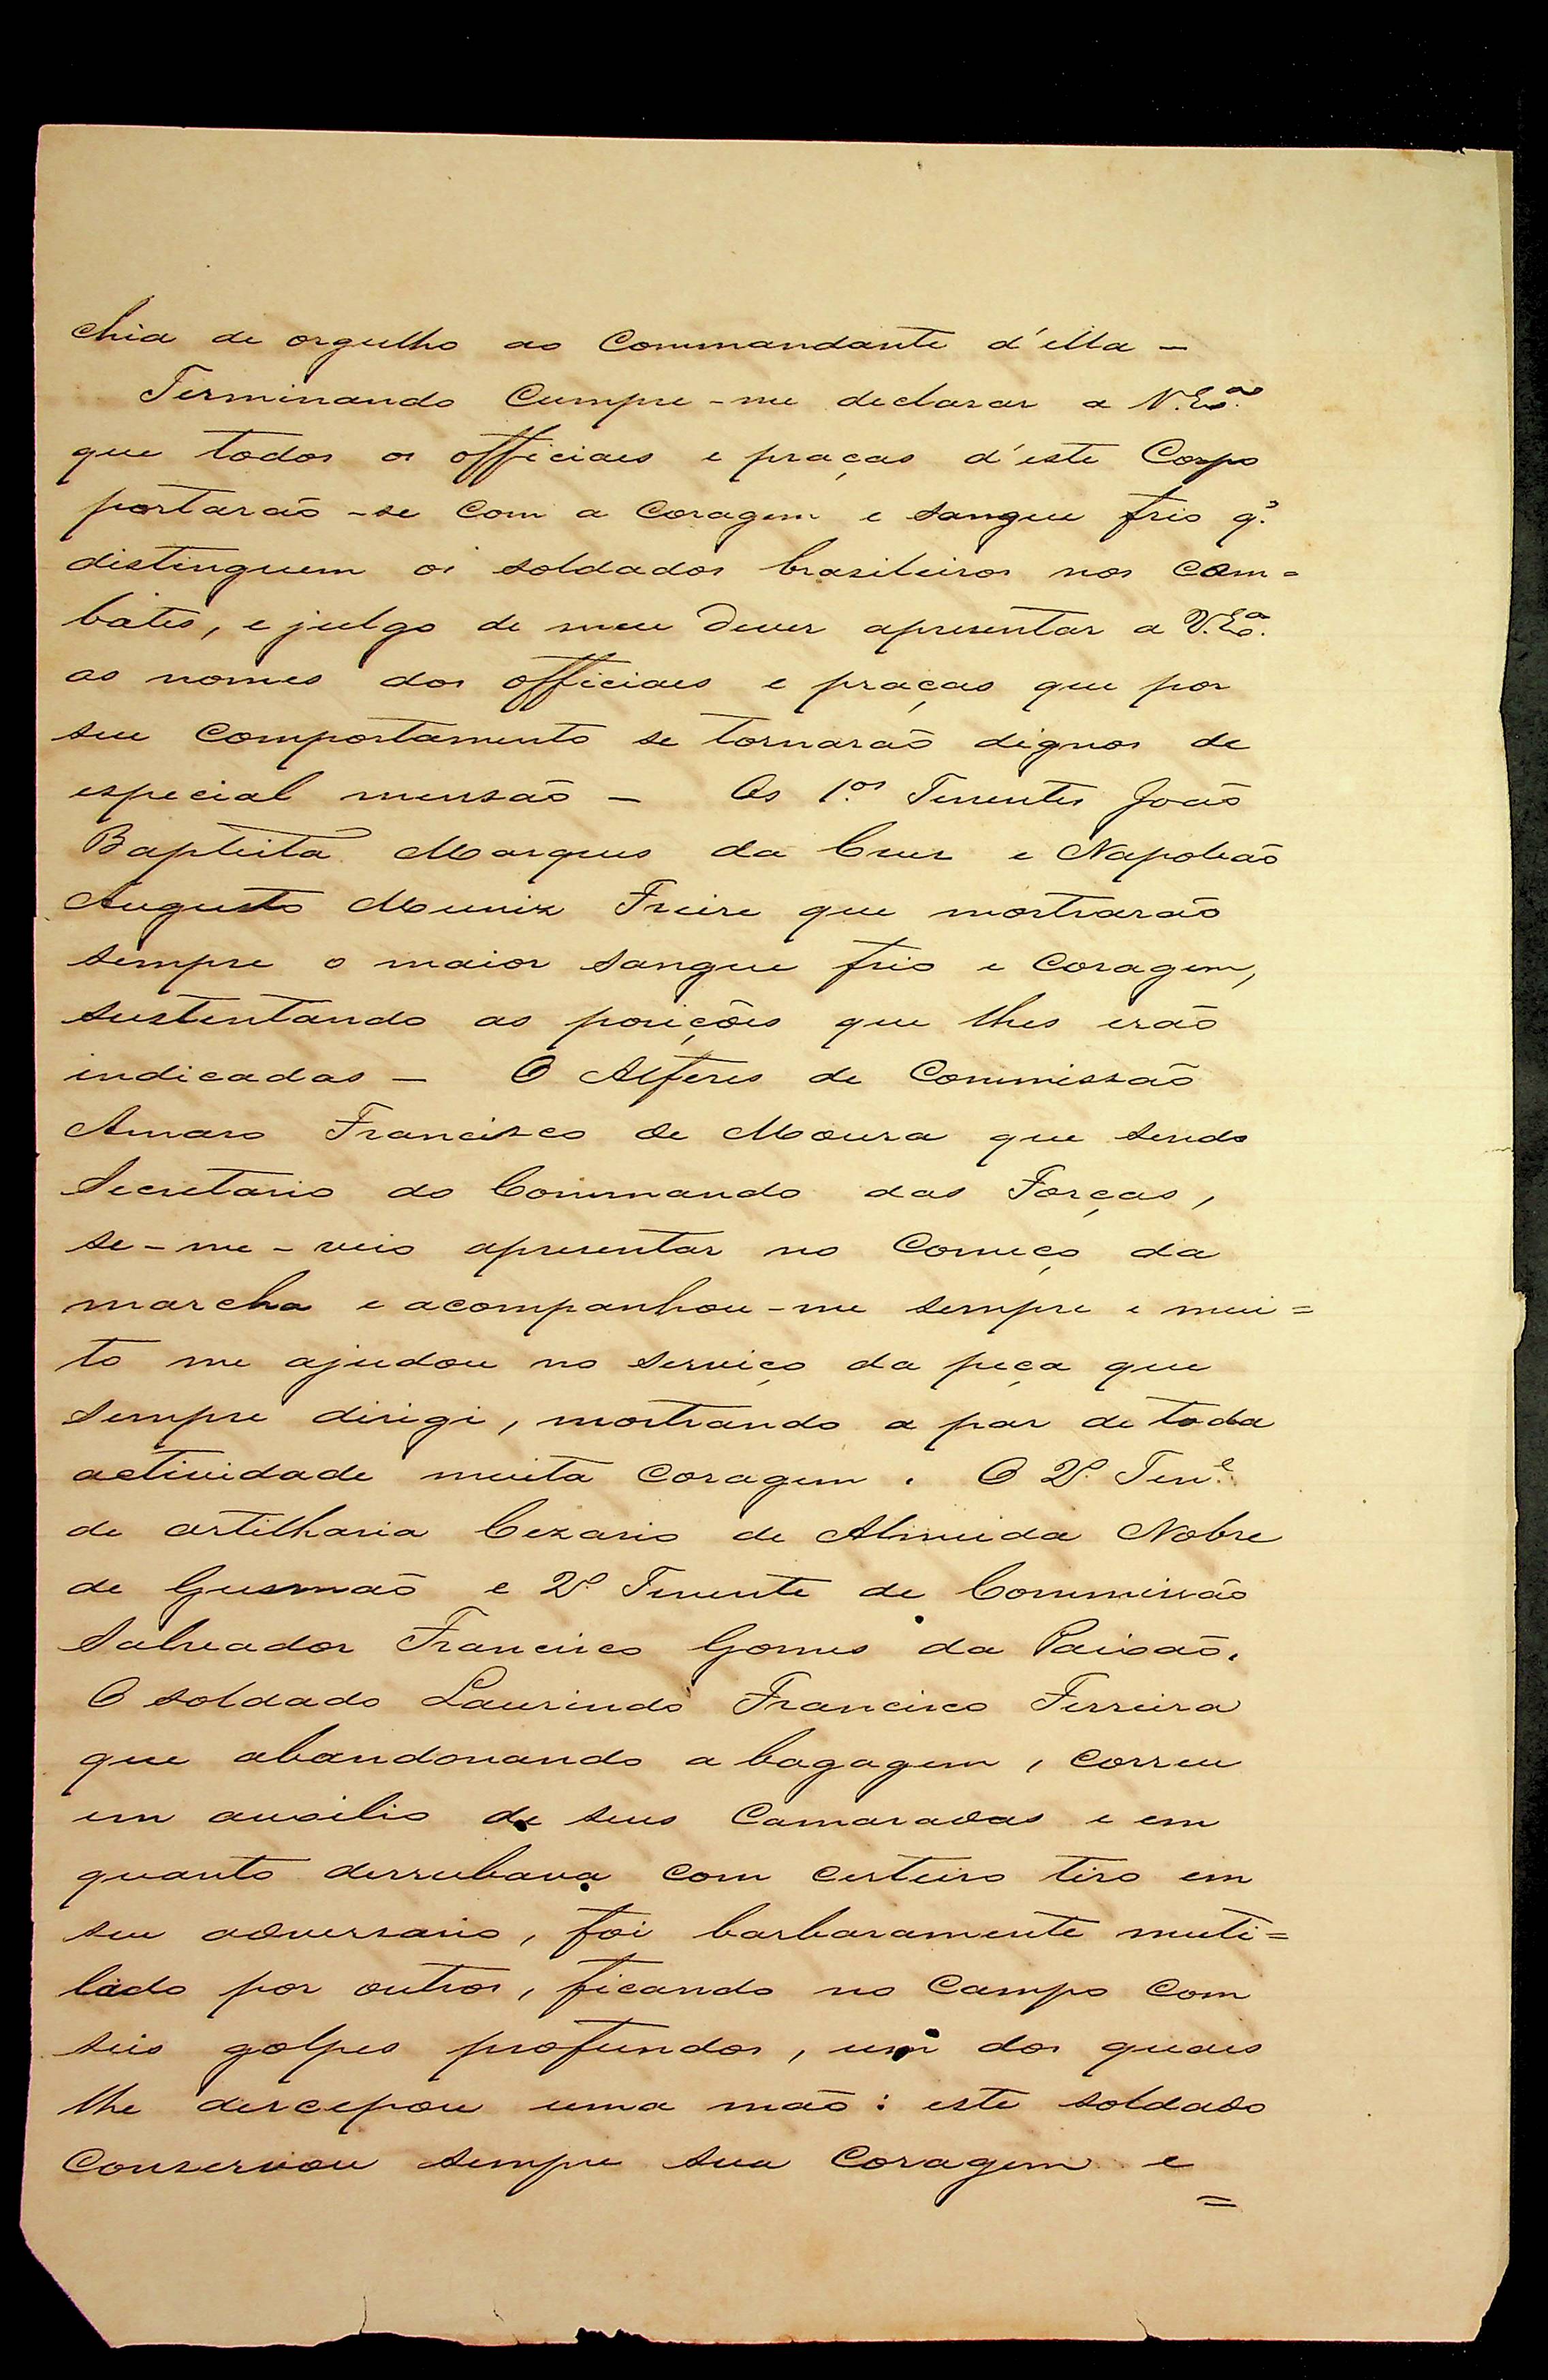 chia de orgulho ao Commandante d'ella –
Terminando Cumpre-me declarar a V. Exª.
que todos os officiaes e praças d'este Corpo
portarão-se com a coragem e sangue frio q.ᵉ
distinguem os soldados brasileiros nos com=
bates, e julgo de meu dever apresentar a V. Exª.
os nomes dos officiaes e praças que por
seu comportamento se tornarão dignos de
especial mensão – Os 1.ᵒˢ Tenentes João
Baptista Marques da Cruz e Napoleão
Augusto Muniz Freire que mostrarão
sempre o maior sangue frio e coragem,
sustentando as posições que lhes erão
indicadas – O Alferes de Commissão
Amaro Francisco de Moura que sendo
Secretario do Commando das Forças,
se-me-veio apresentar no começo da
marcha e acompanhou-me sempre e mui=
to me ajudou no serviço da peça que
sempre dirigi, mostrando a par de toda
actividade muita coragem. O 2º Ten.ᵉ
de artilharia Cezario de Almeida Nobre
de Gusmão e 2º Tenente de Commissão
Salvador Francisco Gomes da Paixão.
O soldado Laurindo Francisco Ferreira
que abandonando a bagagem, correu
em auxilio de seus camaradas e em
quanto derrubava com certeiro tiro em
seu adversario, foi barbaramente muti=
lado por outros, ficando no campo com
seis golpes profundos, um dos quaes
lhe descepou uma mão: este soldado
conservou sempre sua coragem e
=